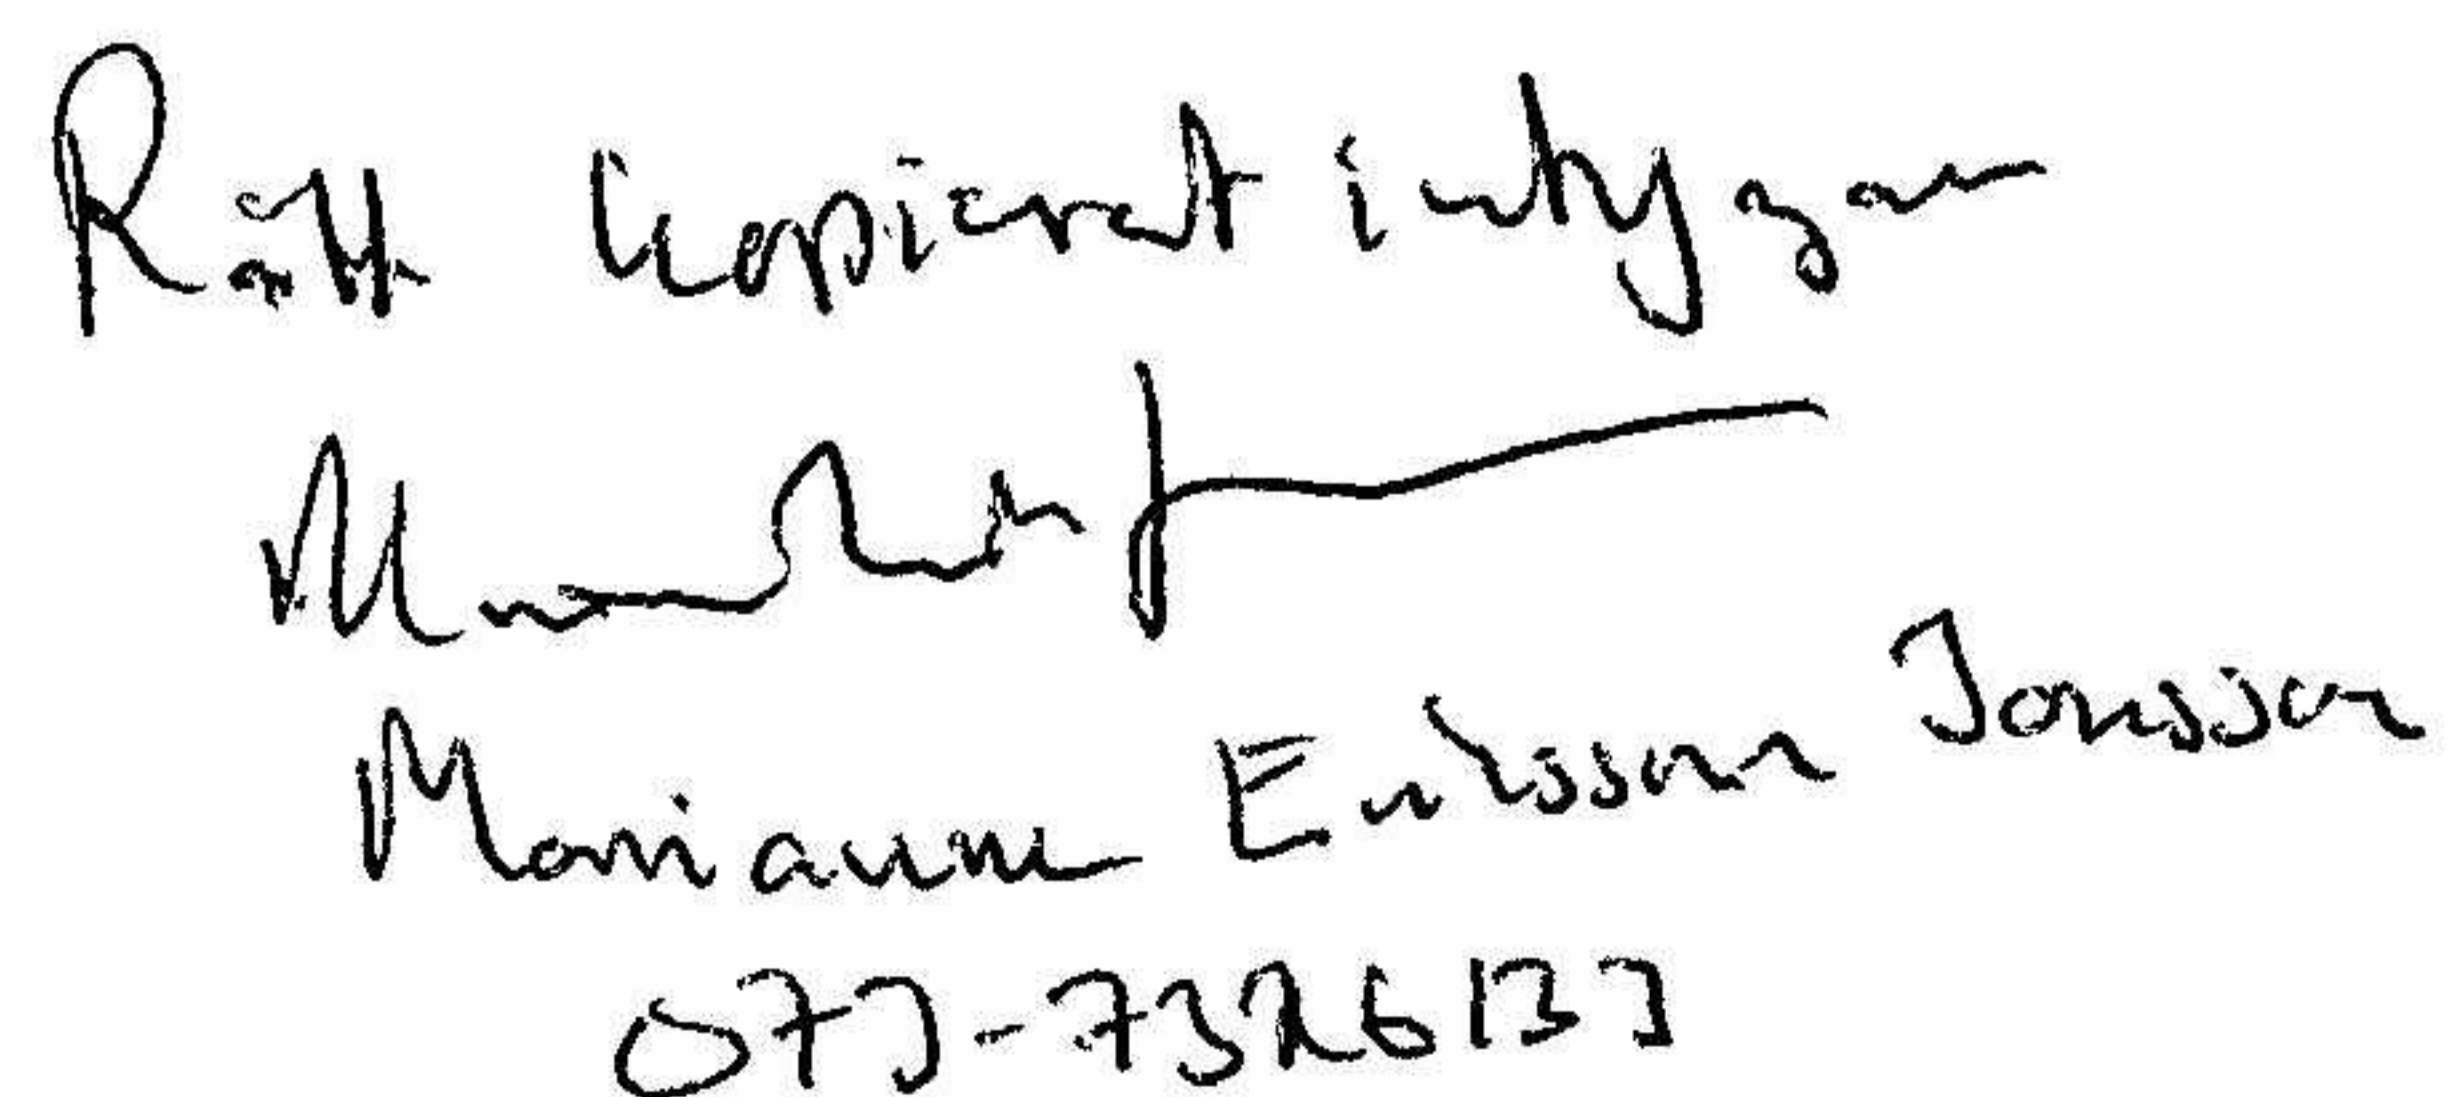 Rätt kopierat intygar
Marianne Eriksson Jonsson
073-7326133